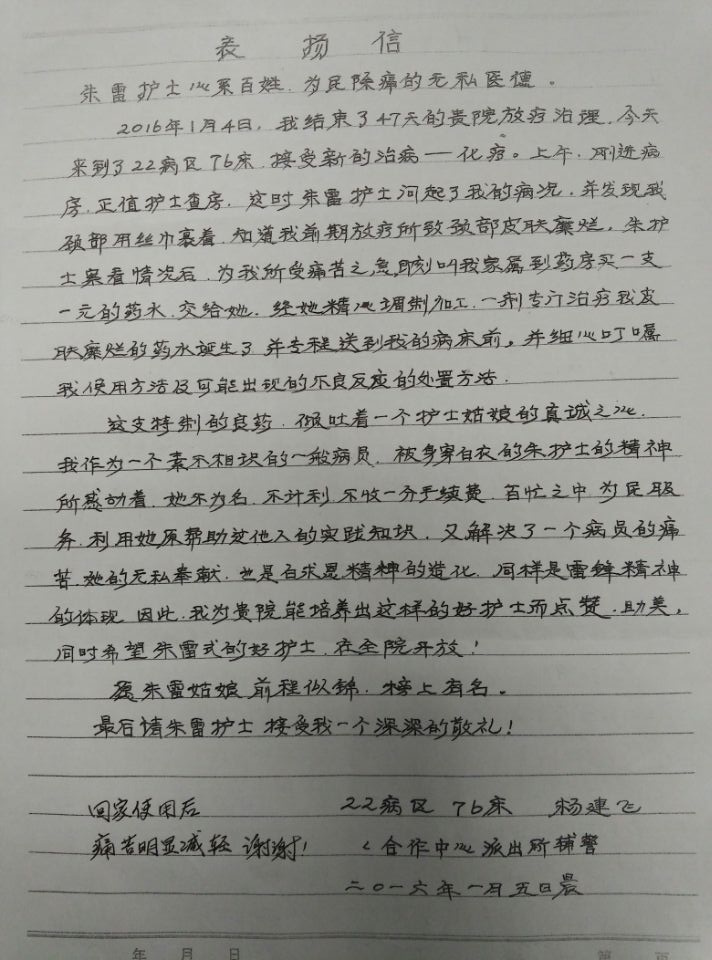 表扬信
朱雷护士心系百姓.为民除痛的无私医德。
2016年1月4日,我结束了47天的贵院放疗治理.今天
来到了22病区76床.接受新的治病——化疗。上午.刚进病
房.正值护士查房.这时朱雷护士问起了我的病况.并发现我
颈部用丝巾裹着.知道我前期放疗所致颈部皮肤糜烂.朱护
士察看情况后.为我所受痛苦之急,即刻叫我家属到药房买一支
一元的药水.交给她.经她精心调制加工.一剂专疗治疗我皮
肤糜烂的药水诞生了.并专程送到我的病床前。并细心叮嘱
我使用方法及可能出现的不良反应的处置方法.
这支特制的良药.倾吐着一个护士姑娘的真诚之心.
我作为一个素不相识的一般病员.被身穿白衣的朱护士的精神
所感动着.她不为名.不计利.不收一分手续费.百忙之中为民服
务.利用她原帮助过他人的实践知识.又解决了一个病员的痛
苦.她的无私奉献.也是白求恩精神的造化.同样是雷锋精神
的体现.因此.我为贵院能培养出这样的好护士而点赞.助美,
同时希望朱雷式的好护士.在全院开放!
愿朱雷姑娘前程似锦.榜上有名。
最后请朱雷护士接受我一个深深的敬礼!
回家使用后 22病区 76床 杨建飞
痛苦明显减轻 谢谢! 合作中心派出所辅警
二〇一六年一月五日晨
年 月 日 第 页